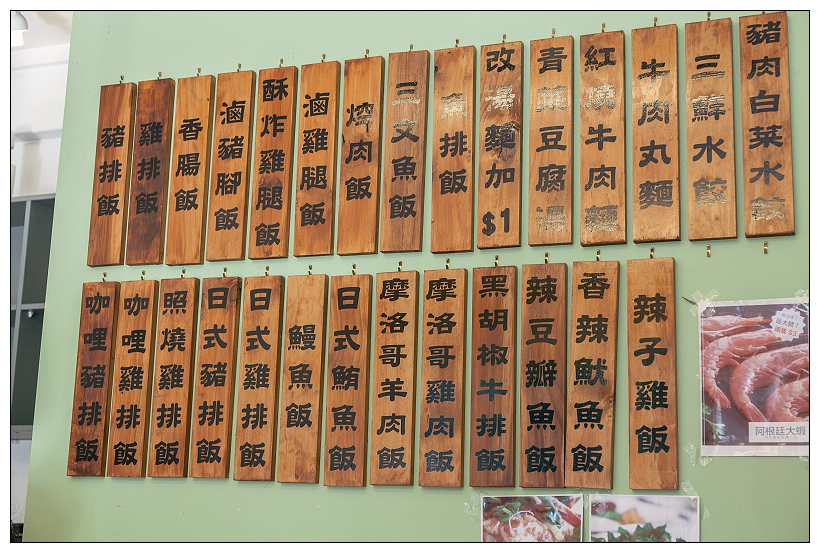 豬排飯
雞排飯
香腸飯
滷豬腳飯
酥炸雞腿飯
滷雞腿飯
焢肉飯
三文魚飯
魚排飯
改湯麵加$1
青菜豆腐湯
紅燒牛肉麵
牛肉丸麵
三鮮水餃
豬肉白菜水餃
咖哩豬排飯
咖哩雞排飯
照燒雞排飯
日式豬排飯
日式雞排飯
鰻魚飯
日式鮪魚飯
摩洛哥羊肉飯
摩洛哥雞肉飯
黑胡椒牛排飯
辣豆瓣魚飯
香辣魷魚飯
辣子雞飯
超大號！
阿根廷大蝦